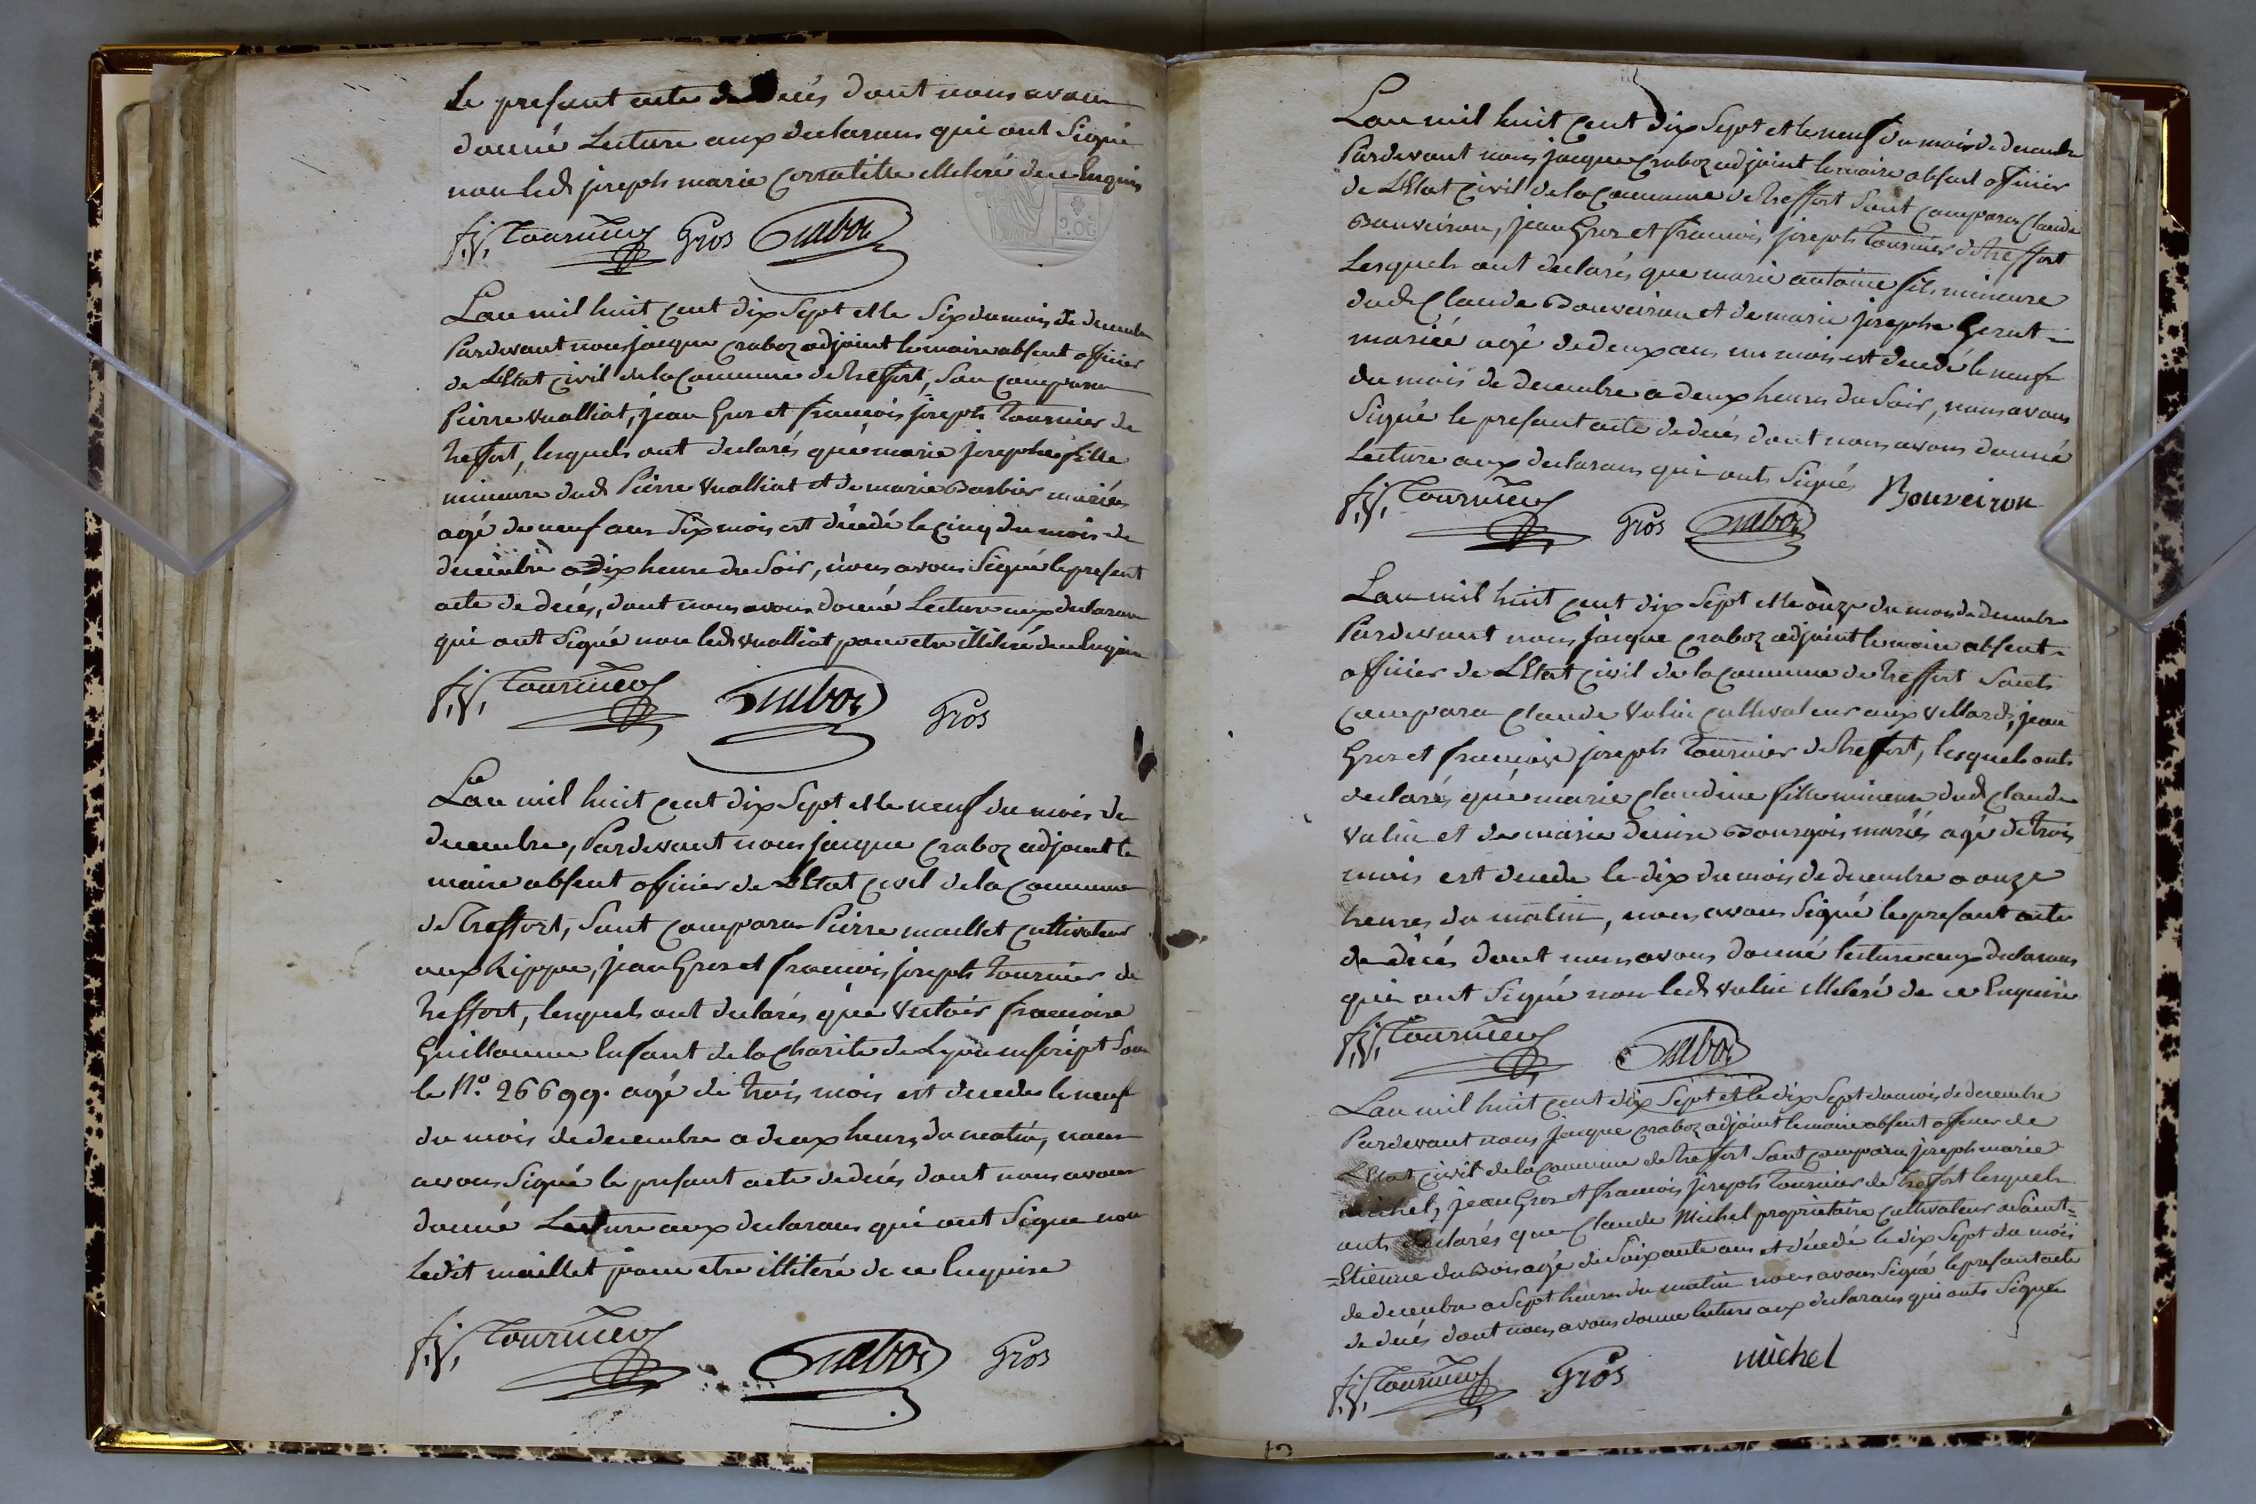 Le present acte de decés dont nous avons
donné Lecture aux declarans qui ont Signé
non led joseph marie illiteré de ce Enquis
f. j. Tournier Gros Craboz
Lan mil huit Cent dix Sept et le Six du mois de decembre
Pardevant nous jacque Craboz adjoint le maire absent officier
de LEtat Civil de la Commune de Treffort, Son Comparu
Pierre vualliat, jean Gros et francois joseph Tournier de
Treffort, lesquels ont declarés que marie josephe fille
mineure dud Pierre vualliat et de marie Barbier mariés
agé de neuf ans Six mois est décedé le Cinq du mois de
decembre a Dix heure du Soir, nous avons Signé le present
acte de decés, dont nous avons donné Lecture aux declarans
qui ont Signé non led vualliat pour etre illiteré de ce Enquis
f. j. Tournier Craboz Gros
Lan mil huit Cent dix Sept et le neuf du mois de
decembre, Pardevant nous jacque Craboz adjoint le
maire absent officier de LEtat Civil de la Commune
de Treffort, Sont Comparu Pierre maillet Cultivateur
aux Rippes, jean Gros et francois joseph Tournier de
Treffort, lesquels ont declarés que victoir francoise
Guillaume Enfant de la Charité de Lyon inscript Sous
le N.º 26699. agé de trois mois est decede le neuf
du mois de decembre a deux heures du matin, nous
avons Signé le present acte de decés dont nous avons
donné Lecture aux declarans qui ont Signe non
Ledit maillet pour etre illiteré de ce Enquise
f. j. Tournier Craboz Gros
Lan mil huit Cent Dix Sept et le neuf du mois de decembre
Pardevant nous jacque Craboz adjoint le maire absent officier
de LEtat Civil de la Commune de Treffort Sont Comparu Claude
Bouveiron, jean Gros et francois joseph Tournier de Treffort
Lesquels ont declarés que marie antoine fils mineure
dud Claude Bouveiron et de marie josephe
mariée agé de deux ans un mois est decedé le neuf
du mois de decembre a deux heures du Soir, nous avons
Signé le present acte de decés dont nous avons donné
Lecture aux declarans qui onts Signés Bouveiron
f. j. Tournier Gros Craboz
Lan mil huit Cent dix Sept et le onze du mois de decembre
Pardevant nous jacque Craboz adjoint le maire absent
officier de LEtat Civil de la Commune de Treffort Sonts
Comparu Claude Valin Cultivateur aux Villards, jean
Gros et francoise joseph Tournier de Treffort, lesquels onts
declarés que marie Claudine fille mineure dud Claude
Valin et de marie denise Bourgois mariés agé de trois
mois est decede le dix du mois de decembre a onze
heures du matin, nous avons Signé le present acte
de décés dont nous avons donné lecture aux declarans
qui ont Signé non led valin illeteré de ce Enquise
f. j. Tournier Craboz
Lan mil huit Cent dix Sept et le dix Sept du mois de decembre
Pardevant nous jacque Craboz adjoint le maire absent officier de
LEtat Civil de la Commune de Treffort Sont Comparu joseph marie
michel, jean Gros et francois joseph Tournier de Treffort lesquels
onts declarés que Claude Michel propriétaire Cultivateur a Saint=
=Etienne du Bois agé de Soixante ans et décedé le dix Sept du mois
de decembre a Sept heures du matin nous avons Signé le present acte
de decés dont nous avons donne lecture aux declarans qui onts Signes
f. j. Tournier Gros michel